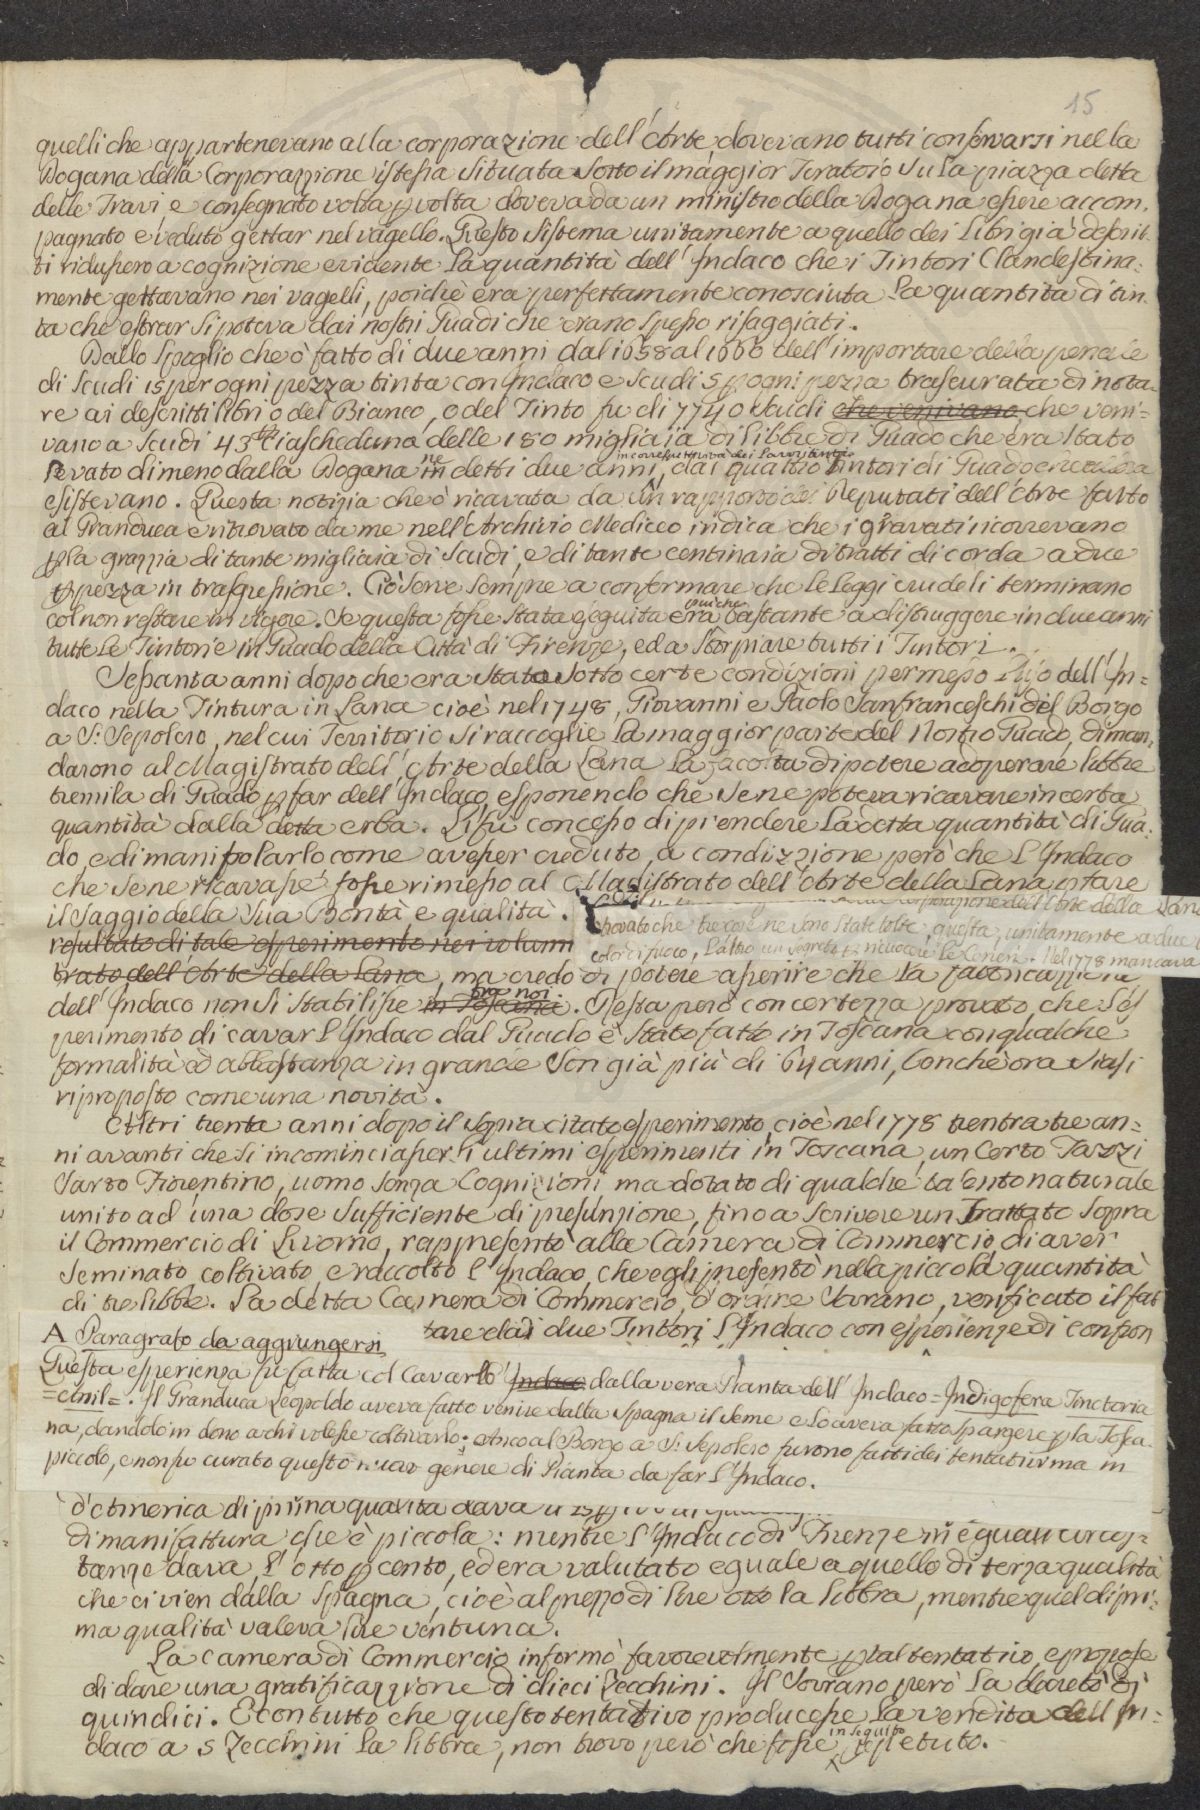 15
quelli che appartenevano alla corporazione dell'Arte dovevano tutti conservarsi nella
Dogana della Corporazzione istessa situata sotto il maggior Tiratoio su la piazza detta
delle Travi, e consegnato volta p volta doveva da un ministro della Dogana essere accom,
pagnato e veduto gettar nel vagello. Questo sistema unitamente a quello dei Libri già descrit-
ti ridussero a cognizione evidente la quantità dell'Indaco che i Tintori Clandestina:
mente gettavano nei vagelli, poichè era perfettamente conosciuta la quantità di tin.
ta che estrar si poteva dai nostri Guadi che erano spesso risaggiati.
Dallo spoglio che ò fatto di due anni dal 1658 al 1660 dell'importare della penale
di scudi 15 per ogni pezza tinta con Indaco e scudi 5 p ogni pezza trascurata di nota-
re ai descritti libri o del Bianco, o del Tinto fu di 7740 scudi che venivano, che veni=
vano a scudi 43 ciascheduna delle 180 migliaia di libbre di Guado che era stato
in correspettività dei Lavoranti
levato di meno dalla Dogana ne detti due anni, dai quattro Tintori di Guado che allora
esistevano. Questa notizia che ò ricavata da un rapporto dei Deputati dell'Arte fatto
al Granduca e ritrovato da me nell'Archivio Mediceo indica che i gravati ricorrevano
p la grazzia di tante migliaia di scudi, e di tante centinaia di tratti di corda a due
p pezza in trasgressione. Ciò serve sempre a confermare che le Leggi crudeli terminano
piuche
col non restare in vigore. Se questa fosse stata eseguita era bastante a distruggere in due anni
tutte le Tintorie in Guado della Città di Firenze, ed a storpiare tutti i Tintori.
Sessanta anni dopo che era stato sotto certe condizioni permesso l'uso dell'In=
daco nella Tintura in Lana cioè nel 1748, Giovanni e Paolo Sanfranceschi del Borgo
a S. Sepolcro, nel cui Territorio si raccoglie la maggior parte del Nostro Guado, diman,
darono al Magistrato dell'Arte della Lana la facoltà di potere adoperare libbre
tremila di Guado p far dell'Indaco, esponendo che se ne poteva ricavare in certa
quantità dalla detta erba. Li fù concesso di prendere la detta quantità di Gua:
do, e di manipolarlo come avesser creduto, a condizzione però che l'Indaco
che se ne ricavasse fosse rimesso al Magistrato dell'Arte della Lana p fare
il saggio della sua Bontà e qualità.
corporazione dell'Arte della Lana
trovato che tre cose ne sono state tolte, questa, unitamente a due
color di fuoco, l'altro un segreto p ricuocere le Ceneri. Nel 1778 mancava
resultato di tale esperimento nei volumi
trato dell'Arte della Lana, ma credo di potere asserire che la fabbricazzione
fra noi
dell'Indaco non si stabilisse in Toscana. Resta però con certezza provato, che l'es
perimento di cavar l'Indaco dal Guado è stato fatto in Toscana con qualche
formalità ed abbastanza in grande son già più di 64 anni, bonchè ora siasi
riproposto come una novità.
Altri trenta anni dopo il sopra citato esperimento, cioè nel 1778 trentatre an=
ni avanti che si incominciasser li ultimi esperimenti in Toscana, un Certo Tazzi
Sarto Fiorentino, uomo senza Cognizioni ma dotato di qualche talento naturale
unito ad una dose sufficiente di presunzione, fino a scrivere un Trattato sopra
il Commercio di Livorno, rappresentò alla Camera di Commercio, di aver
seminato, coltivato, e raccolto l'Indaco, che egli presentò nella piccola quantità
di tre libbre. La detta Camera di Commercio, d'ordine Sovrano, verificato il fat
tare dai due Tintori l'Indaco con esperienze di confron
A Paragrafo da aggiungersi
Questa esperienza fu fatta col cavarlo Indaco dalla vera Pianta dell'Indaco = Indigofera Tinctoria
=Anil=. Il Granduca Leopoldo aveva fatto venire dalla Spagna il seme e lo aveva fatto spargere p la Tosca-
na, dandolo in dono a chi volesse coltivarlo; Anco al Borgo a S. Sepolcro furono fatti dei tentativi ma in
piccolo, e non fu curato questo nuovo genere di Pianta da far l'Indaco.
d'America di prima qualità dava il 25 p
di manifattura che è piccola: mentre l'Indaco di Firenze in eguali circos=
tanze dava l'otto p cento, ed era valutato eguale a quello di terza qualità
che ci vien dalla Spagna, cioè al prezzo di lire otto la libbra, mentre quel di pri:
ma qualità valeva lire ventuna.
La Camera di Commercio informò favorevolmente p tal tentativo, e propose
di dare una gratificazzione di dieci Zecchini. Il Sovrano però la daretò di
quindici. E con tutto che questo tentativo producesse la vendita dell'In:
in seguito
daco a 5 Zecchini la libbra, non trovo però che fosse ripetuto.